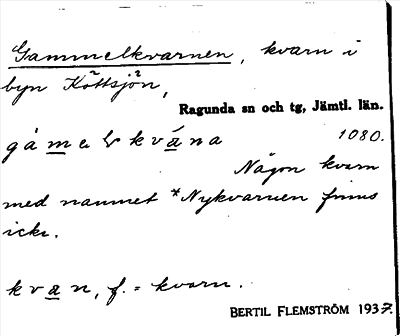 Gammelkvarnen, kvarn i
byn Köttsjön,
Ragunda sn och tg, Jämtl. län.
1080.
Någon kvarn
med namnet *Nykvarnen finns
icke.
kvan, f. = kvarn.
BERTIL FLEMSTRÖM 1937.